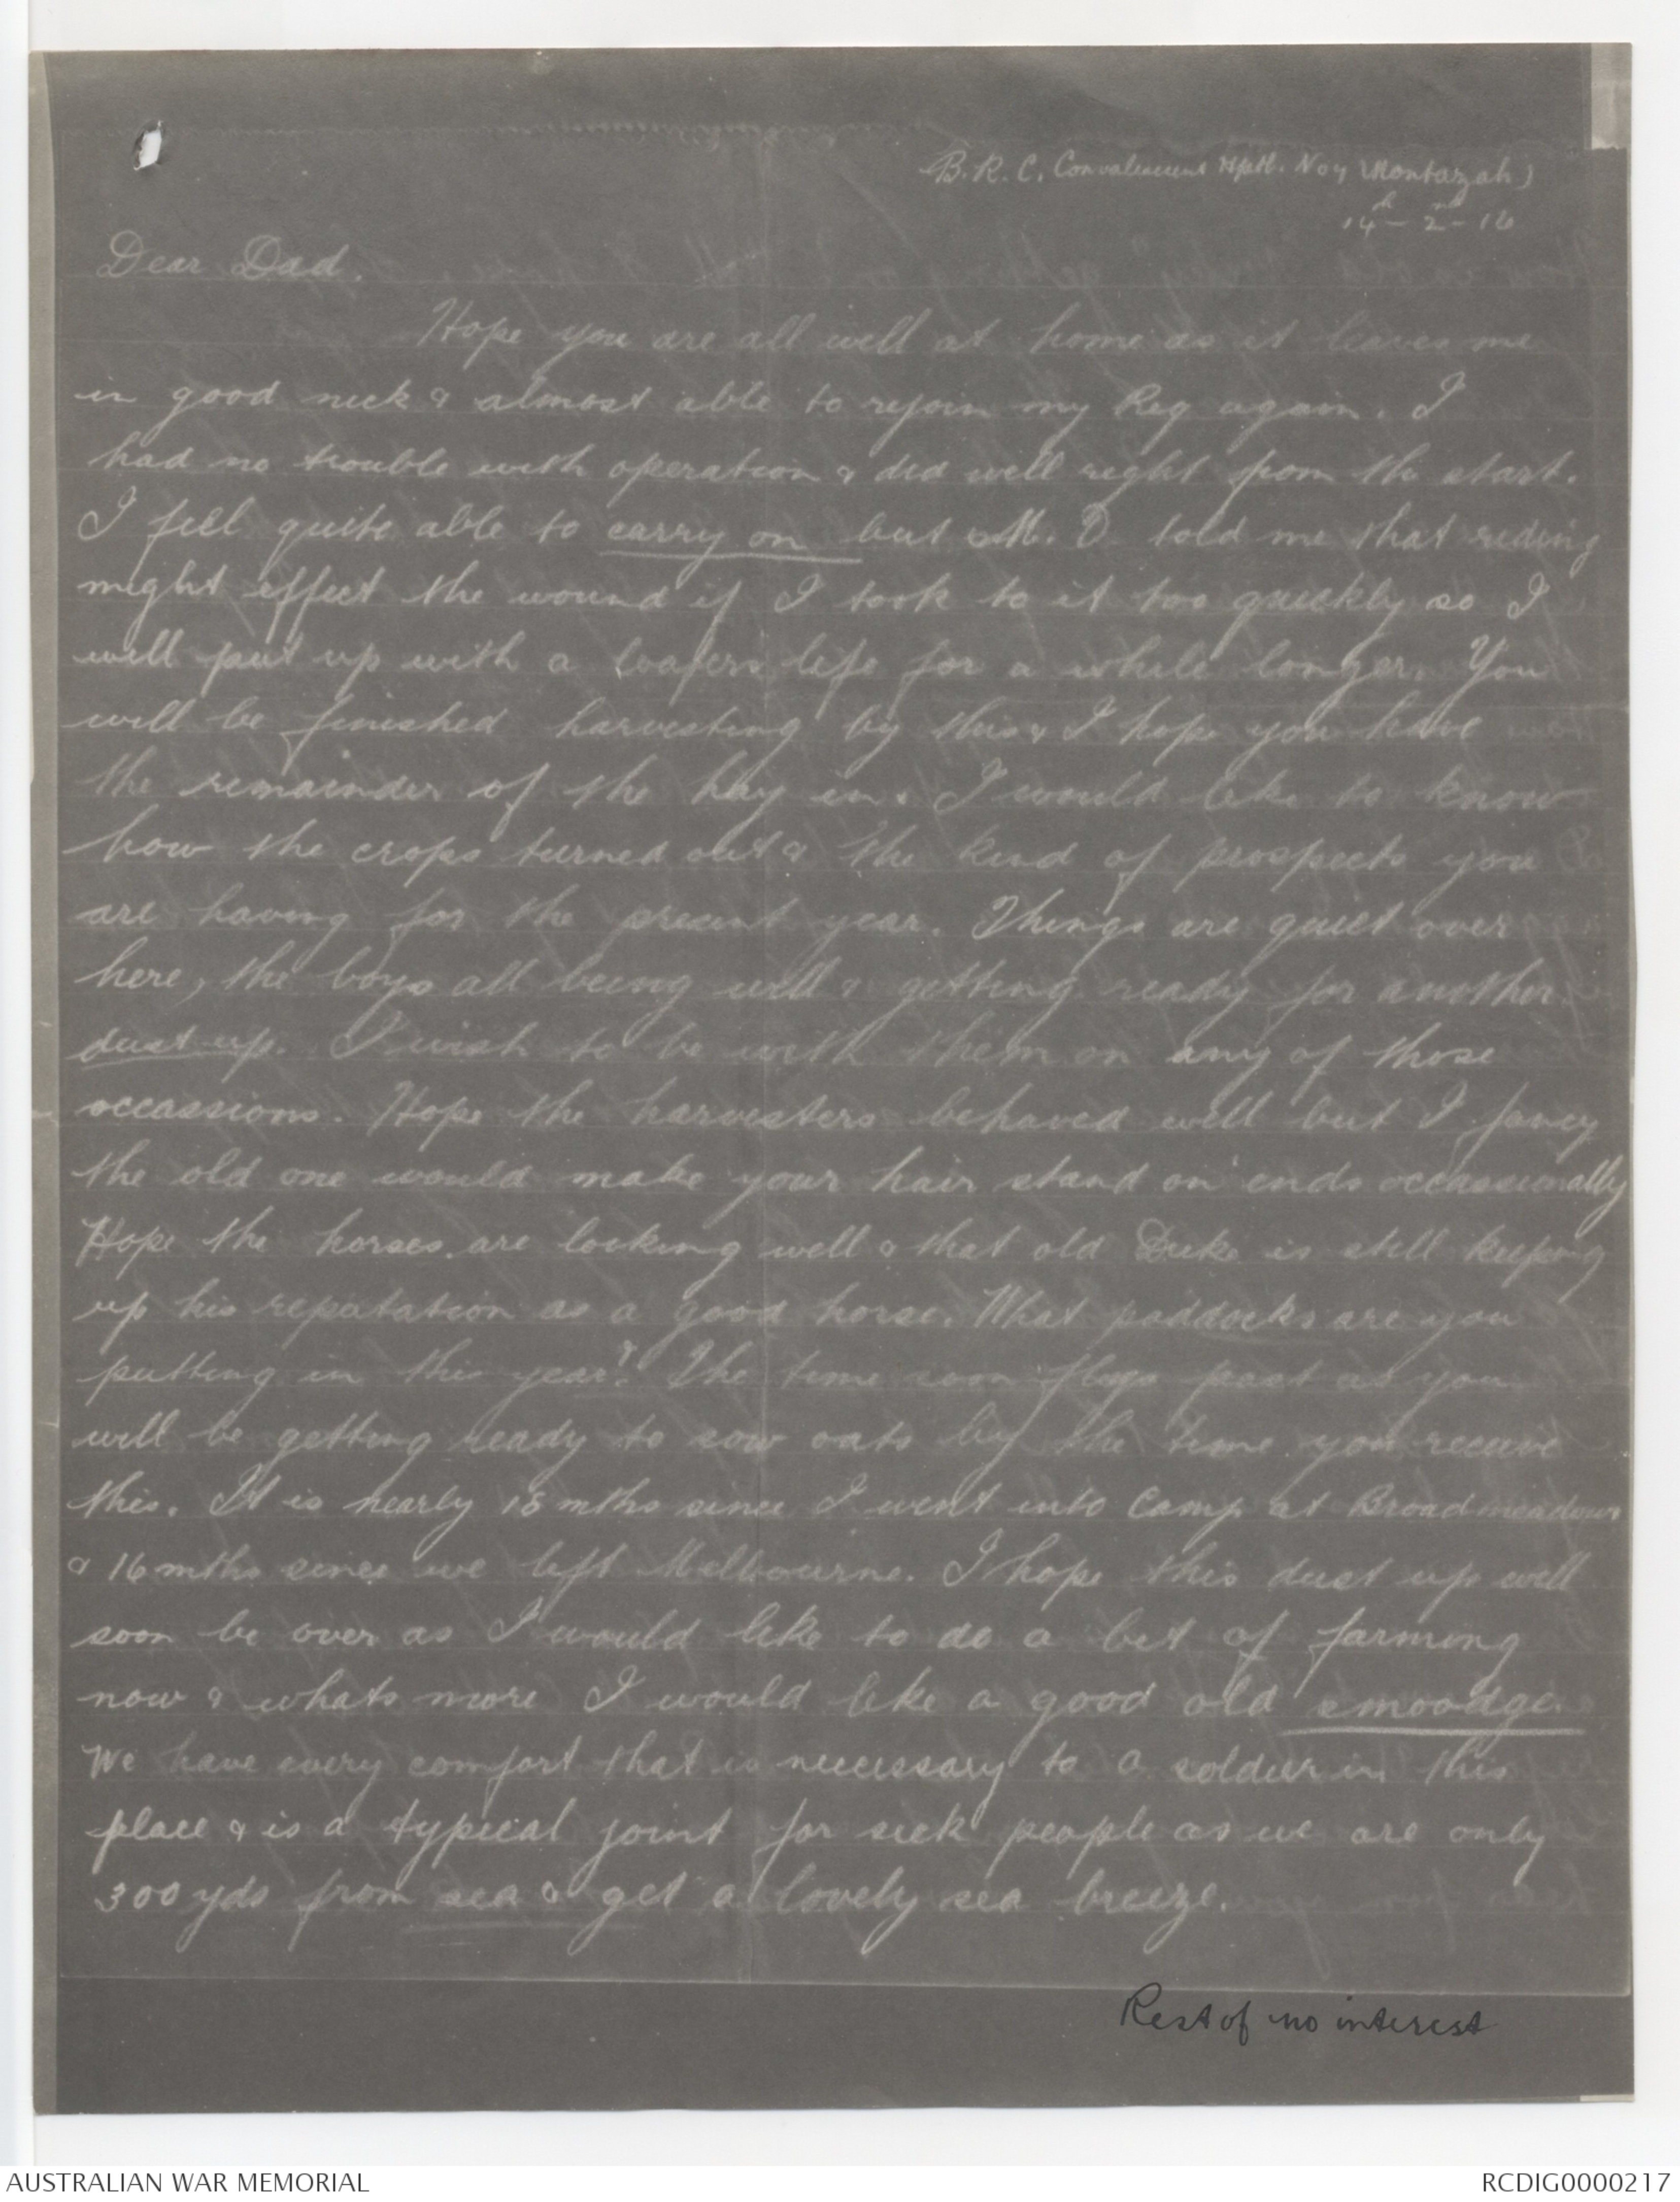 B.R.C. Convalescent Hptl. No 7 Montazah)
14th - 2nd - 16
Dear Dad.
Hope you are all well at home as it leaves me
in good nick & almost able to rejoin my Reg again. I
had no trouble with operation & did well right from the start.
I feel quite able to carry on but M.O. told me that riding
might effect the wound if I took to it too quickly so I
will put up with a loafers life for a while longer. You
will be finished harvesting by this & I hope you have
the remainder of the hay in. I would like to know
how the crops turned out & the kind of prospects you
are having for the present year. Things are quiet over
here, the boys all being well & getting ready for another
dust up. I wish to be with them on any of those
occassions. Hope the harvesters behaved well but I fancy
the old one would make your hair stand on ends occassionally
Hope the horses are looking well & that old Duke is still keeping
up his reputation as a good horse. What paddocks are you
putting in this year? The time soon flys past as you
will be getting ready to sow oats by the time you receive
this. It is nearly 18 mths since I went into Camp at Broadmeadows
& 16 mths since we left Melbourne. I hope this dust up will
soon be over as I would like to do a bit of farming
now & whats more I would like a good old smoodge.
We have every comfort that is neccessary to a soldier in this
place & is a typical joint for sick people as we are only
300 yds from sea & get a lovely sea breeze.
Rest of no interest
AUSTRALIAN WAR MEMORIAL
RCDIG0000217